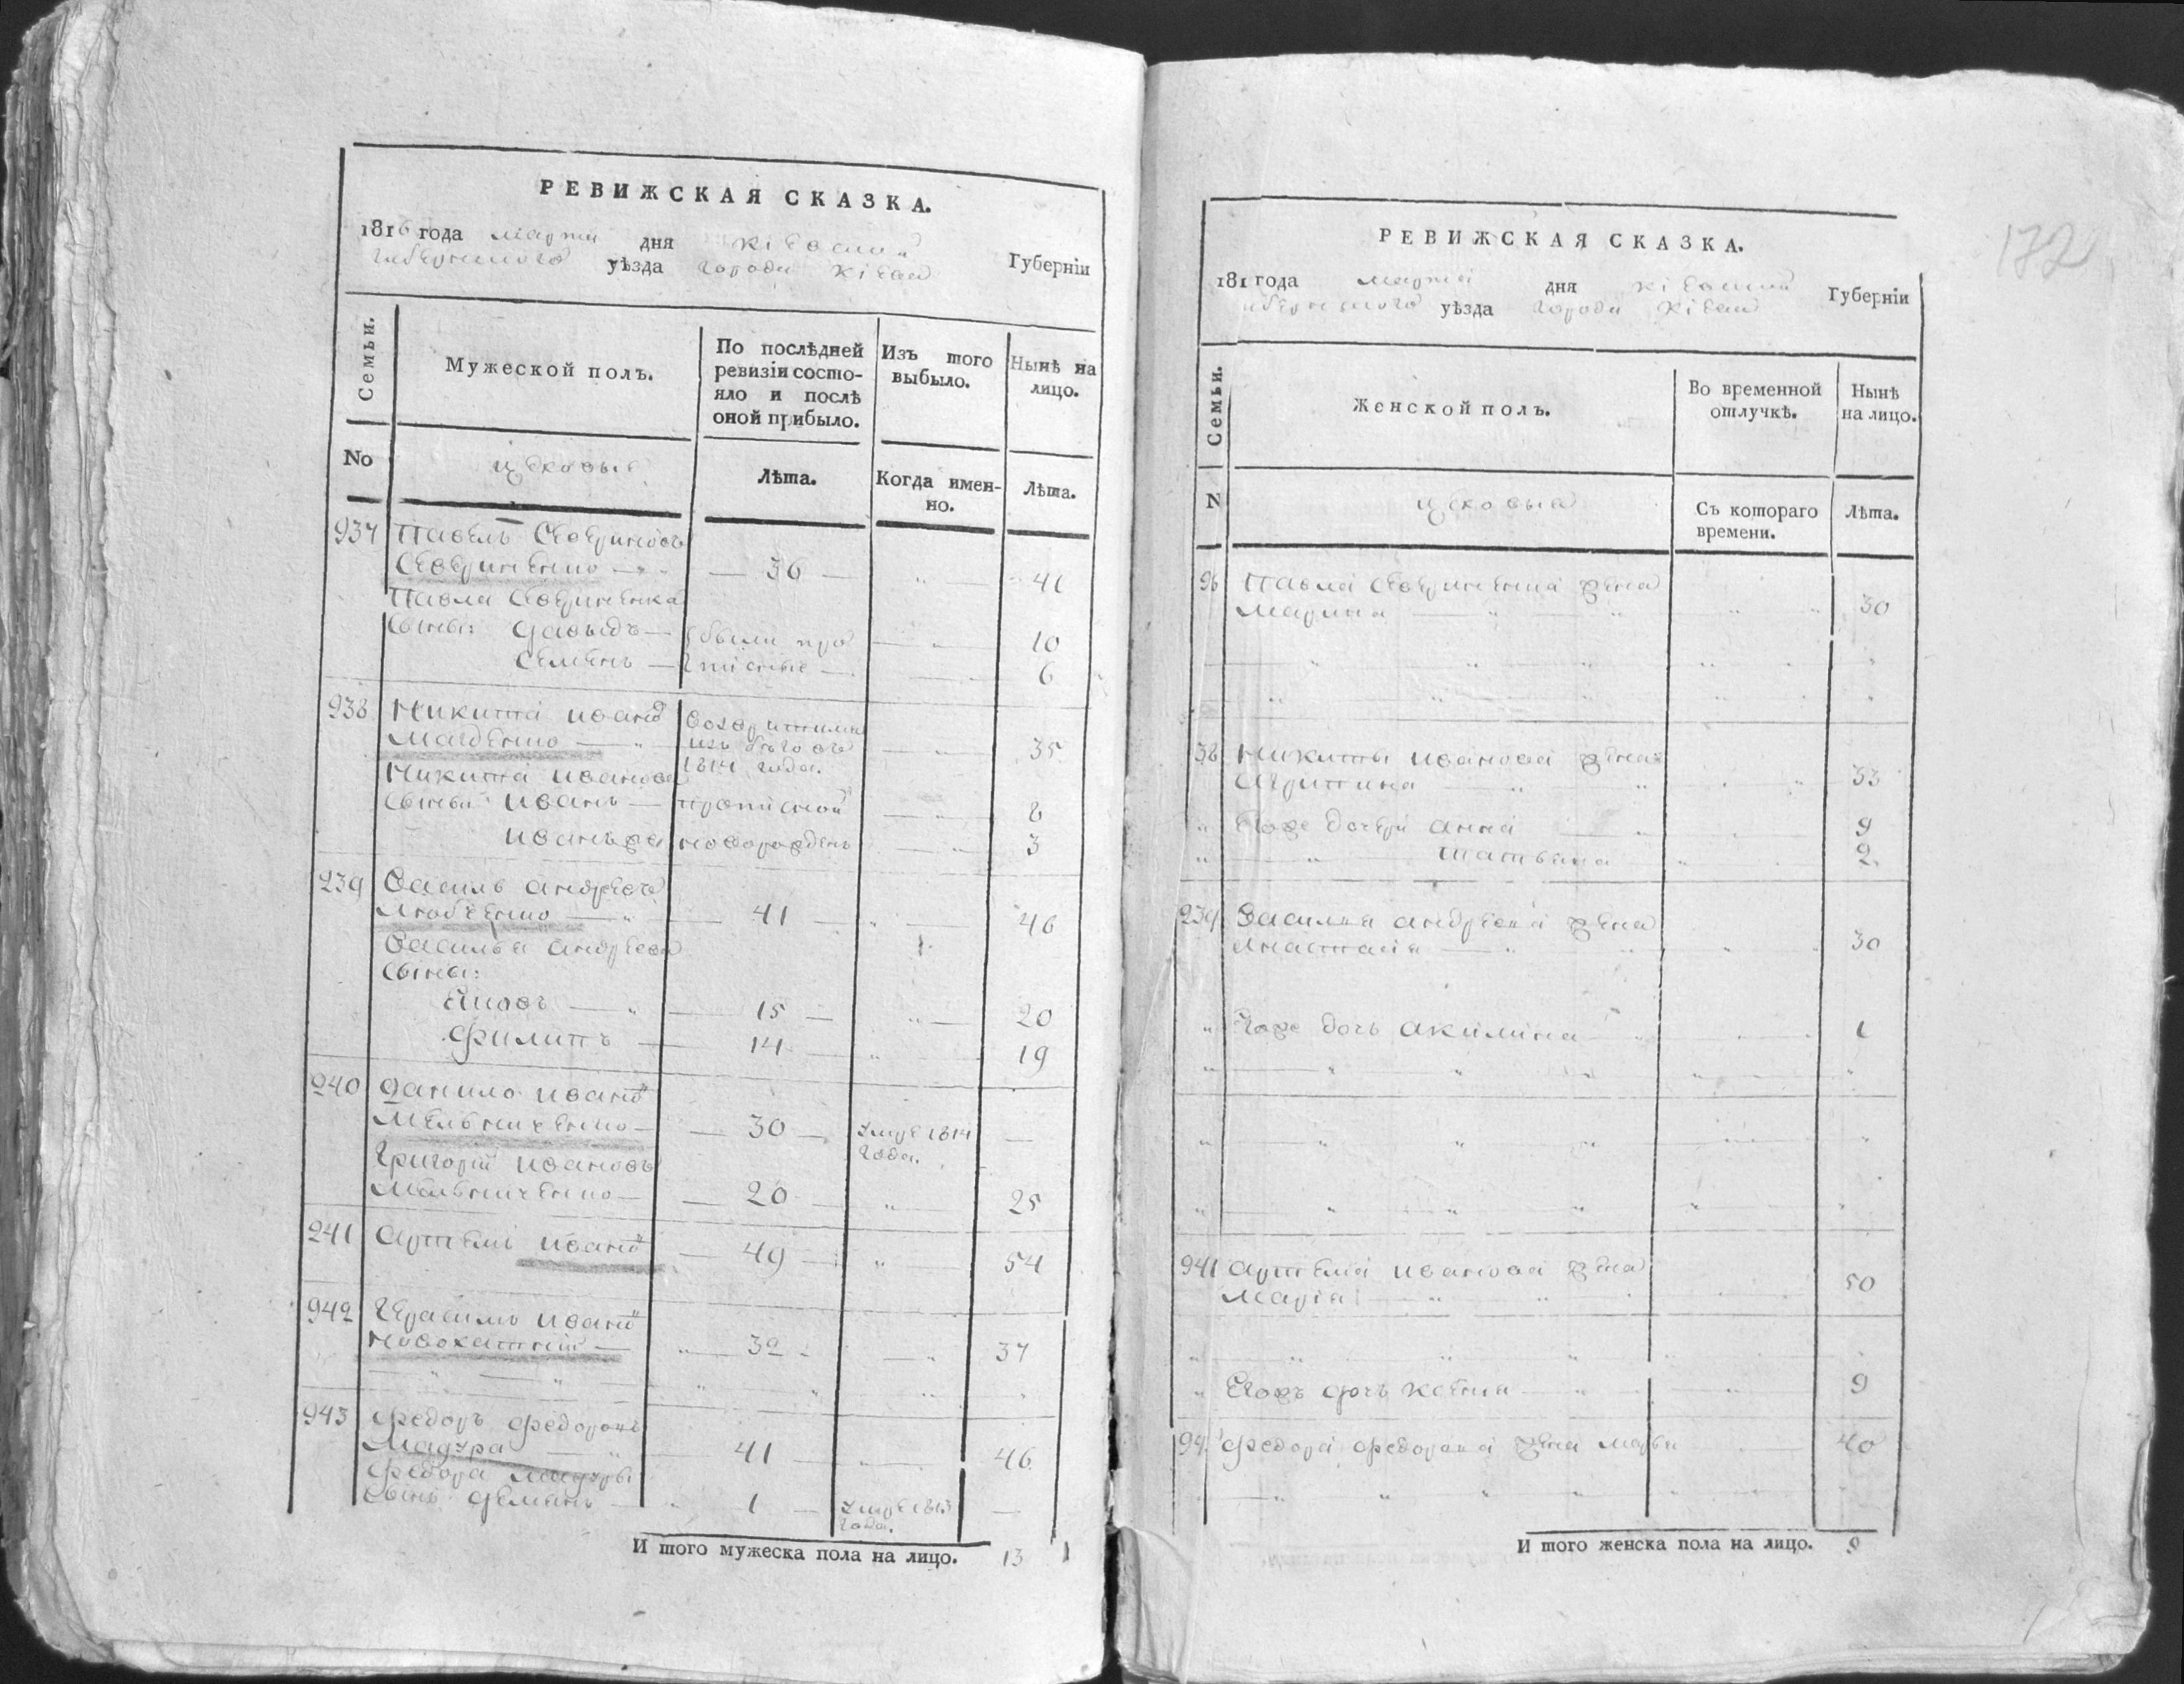 РЕВИЖСКАЯ СКАЗКА.
1816 года марта дня Кіевской Губерніи
губернского уѣзда города Кіева
Семьи.
Мужеской полъ.
По послѣдней ревизіи состо-
яло и послѣ
оной прибыло.
Изъ того
выбыло.
Нынѣ на
лицо.
No
цеховые
Лѣта.
Когда имен-
но.
Лѣта.
937 Павелъ Севериновъ
Севериненко — 36 — 41
Павла Севериненка
сыны: Давыдъ — были про 10
Семенъ — писные — 6
938 Никита Ивановъ
Магденко — изъ бѣговъ 35
Никита Иванова 1814 года.
сыны: Иванъ — прописной 8
Иванъ же новорожденъ 3
939 Василь Андреевъ
Любченко — 41 — 46
Василья Андреева
сыны:
Яковъ — 15 — 20
Филипъ — 14 — 19
940 Данило Ивановъ
Мельниченко — 30 — умре 1814 —
года.
Григорій Ивановъ
Мельниченко — 20 — 25
941 Артемъ Ивановъ — 49 — 54
942 Герасимъ Ивановъ
Новохатній — 32 — 37
943 Федоръ Федоровъ
Мадура — 41 — 46
Федора Мадуры
сынъ Деминъ — 1 — умре 1813 —
года.
И того мужеска пола на лицо. 13
172
РЕВИЖСКАЯ СКАЗКА.
181 года марта дня Кіевской Губерніи
губернского уѣзда города Кіева
Семьи.
Женской полъ.
Во временной
отлучкѣ.
Нынѣ
на лицо.
N
цеховые
Съ котораго
времени.
Лѣта.
Павла Севериненка жена
Марина 30
38 Никиты Иванова жена
33
Его же дочери Анна 9
Татьяна 2
939 Василья Андреева жена
Анастасія 30
Его же дочь Акилина 1
941 Артема Иванова жена
Марія 50
дочь Ксенія 9
94 Федора Федорова жена Марья 40
И того женска пола на лицо. 9